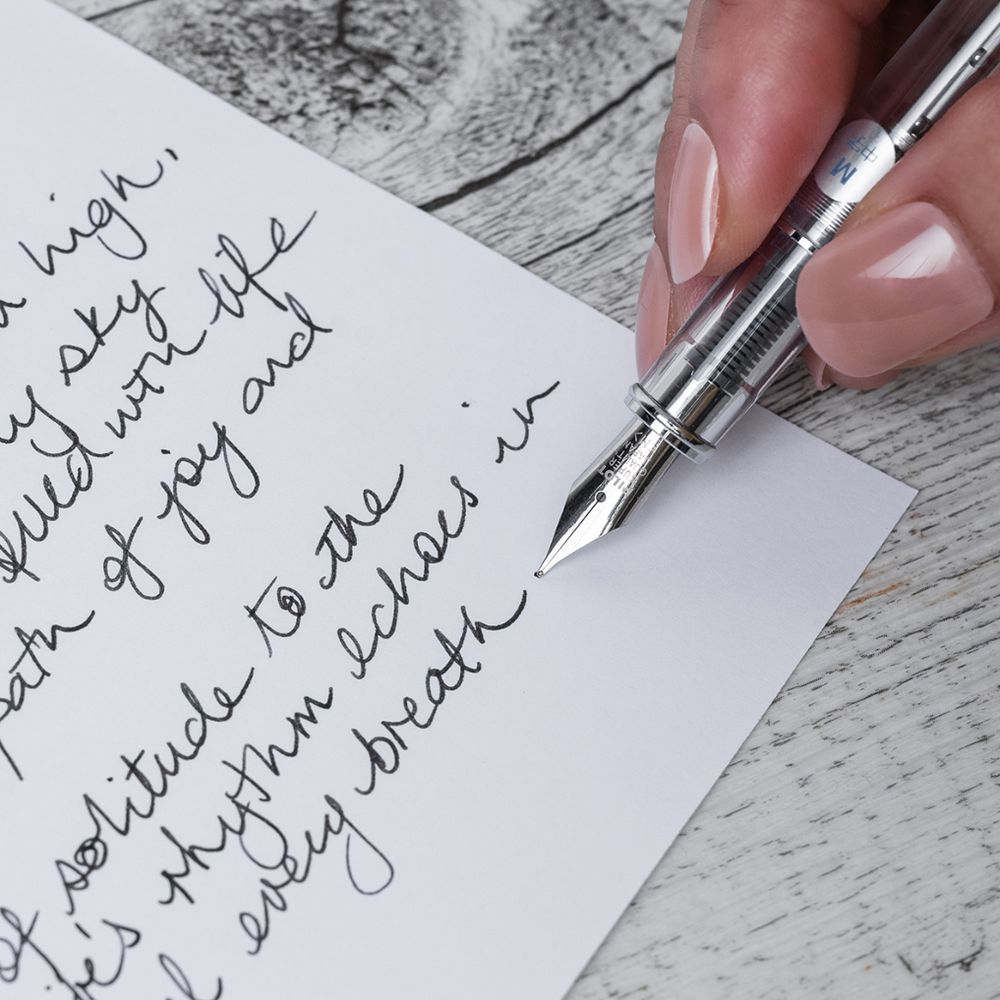 high,
sky
filled with life
path of joy and
of solitude to the
life's rhythm echoes in
every breath
M
中字